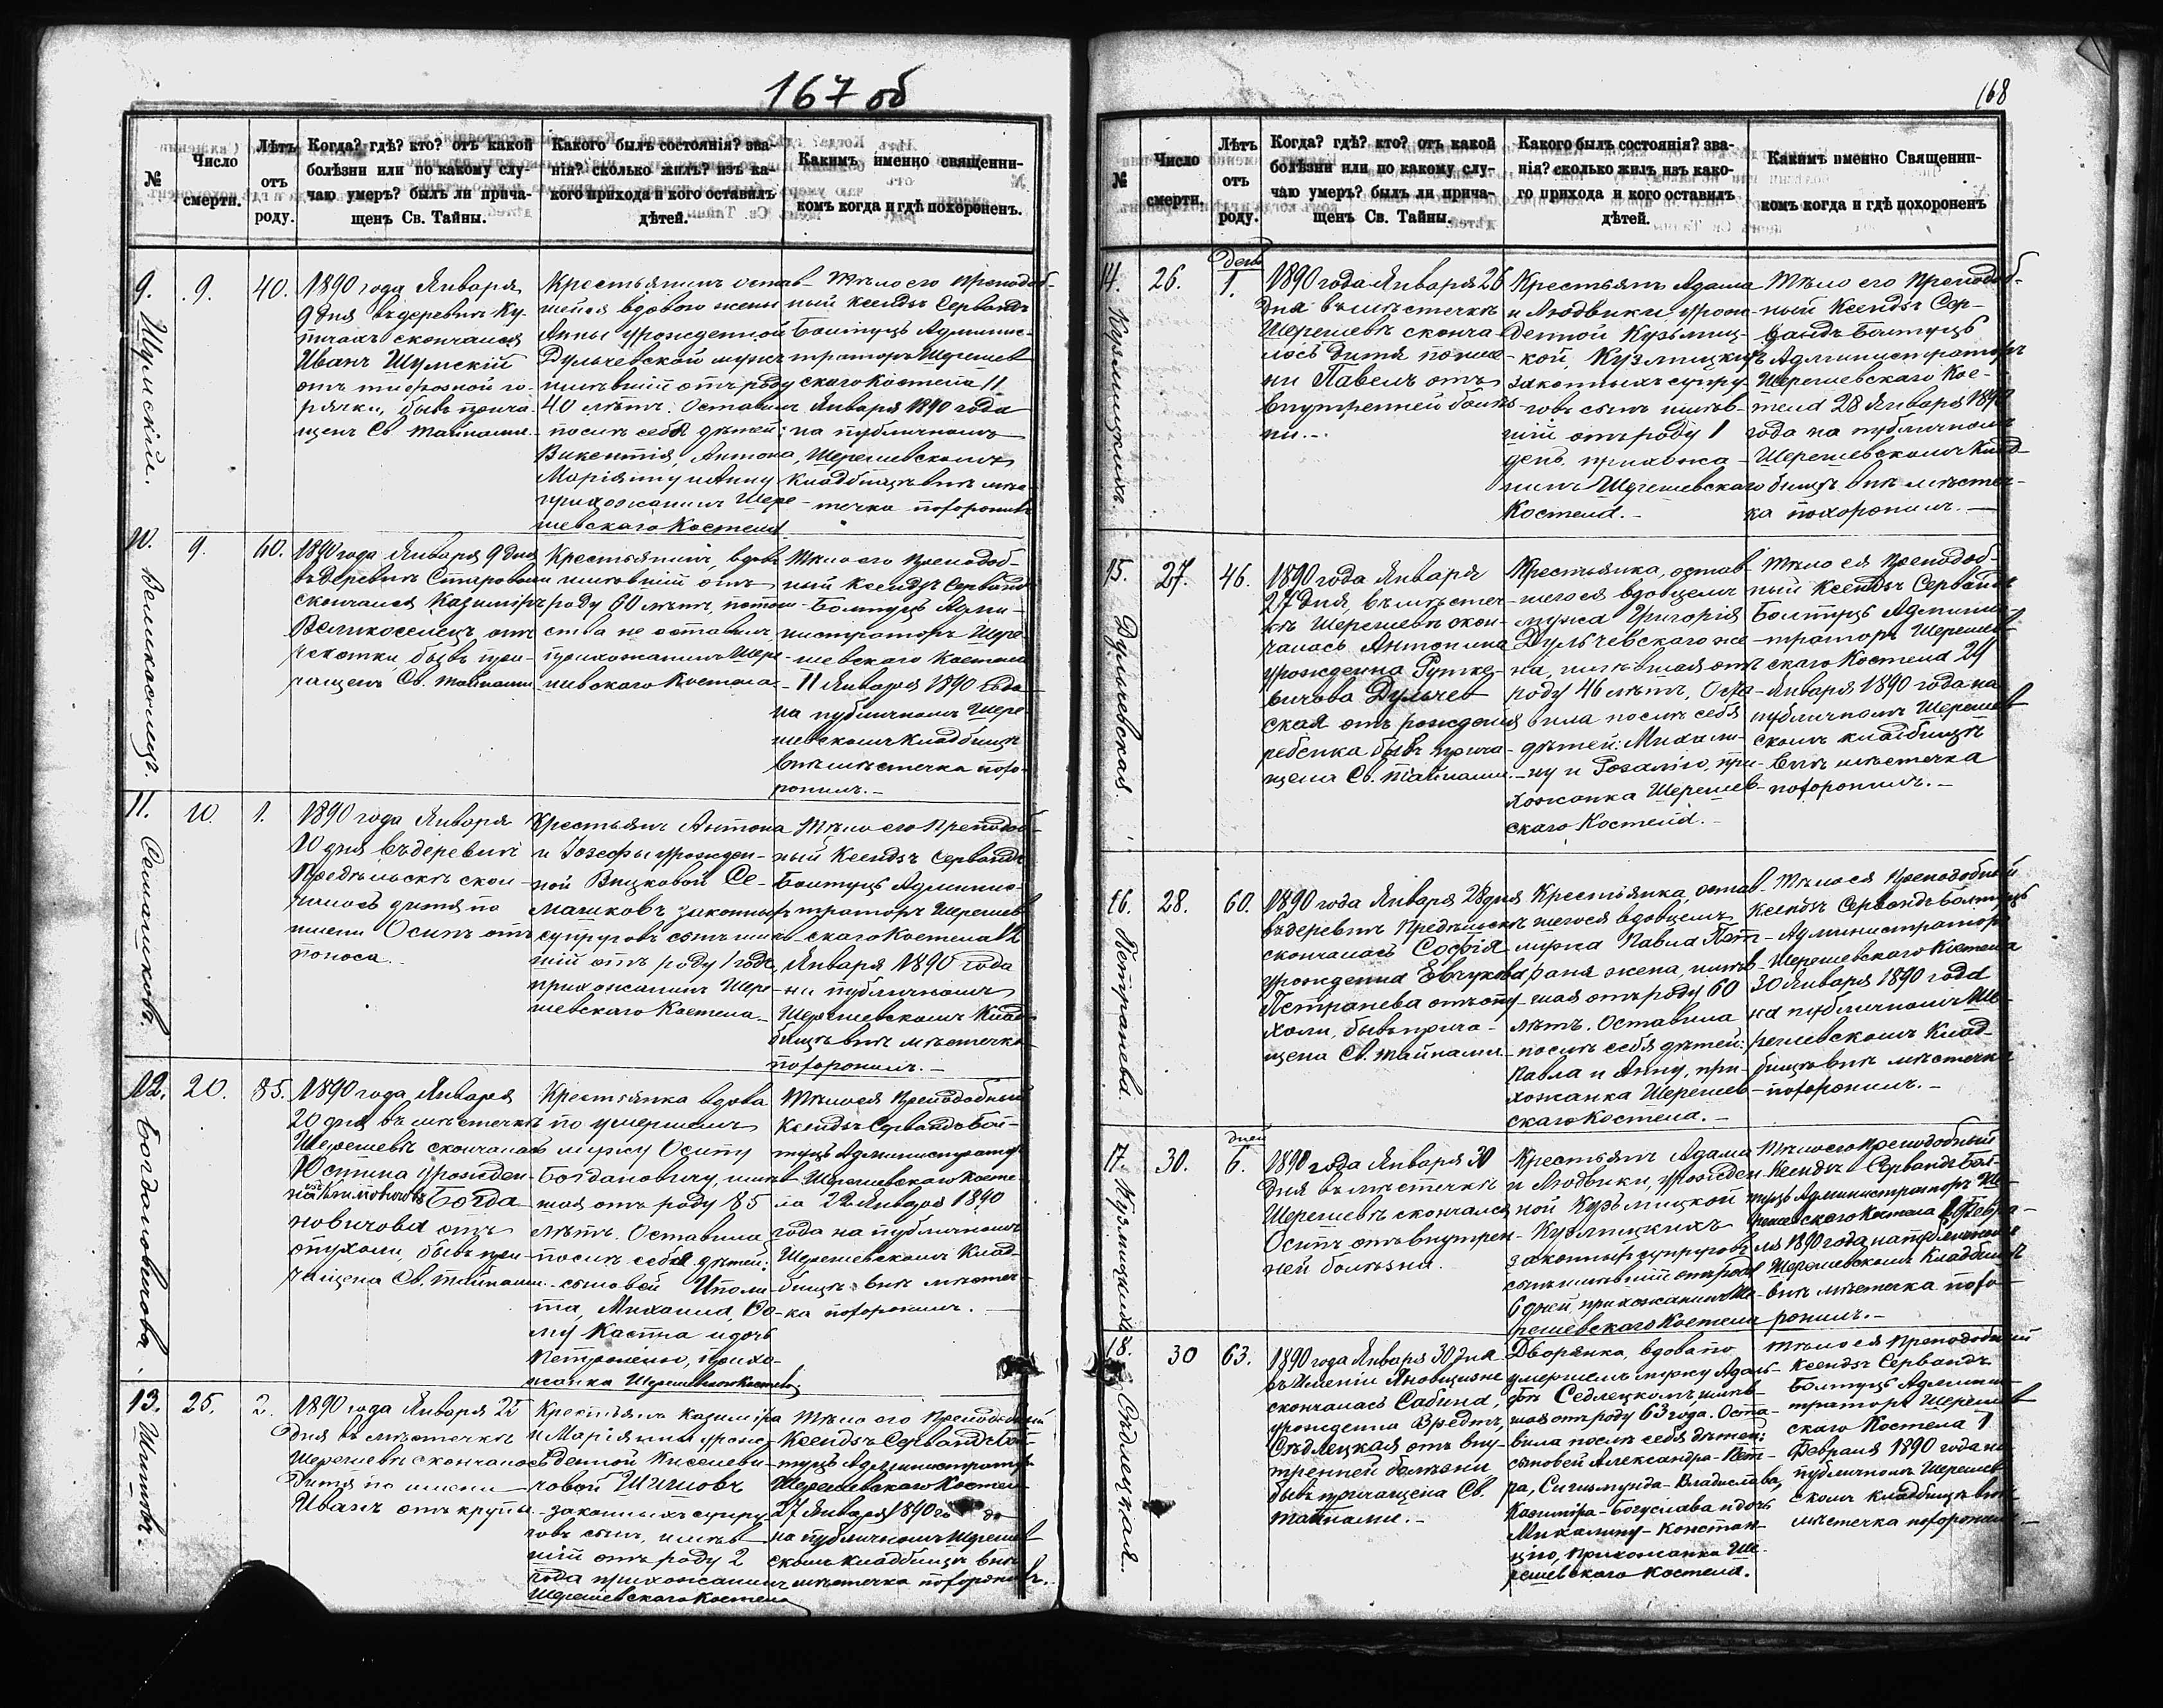 167 об
№
Число смерти.
Лѣтъ отъ роду.
Когда? гдѣ? кто? отъ какой болѣзни или по какому случаю умеръ? былъ ли причащенъ Св. Тайны.
Какого былъ состоянія? званія? сколько жилъ? изъ какого прихода и кого оставилъ дѣтей.
Какимъ именно священникомъ когда и гдѣ похороненъ.
9. Шумскій.
9.
40.
1890 года Января
9 дня въ деревнѣ
скончался
Иванъ Шумскій
отъ тифозной го-
рячки, бывъ прича-
щенъ Св. Тайнами.
Крестьянинъ остав-
шейся вдовою жены
Анны урожденной
Дульчевской мужъ
имѣвшій отъ роду
40 лѣтъ. Оставилъ
послѣ себя дѣтей:
Викентія, Антона,
Маріянну и Анну
прихожанинъ Шере-
шевскаго Костела
Тѣло его Преподоб-
ный Ксендзъ Сервандъ
Админис-
траторъ Шерешев
скаго Костела 11
Января 1890 года
на публичномъ
Шерешевскомъ
Кладбищѣ внѣ мѣс-
течка похоронилъ
10. Великоселецъ.
9.
60.
1890 года Января 9 дня
въ деревнѣ
скончался Казиміръ
Великоселецъ отъ
чахотки, бывъ при-
чащенъ Св. Тайнами
Крестьянинъ, вдовъ
имѣвшій отъ
роду 60 лѣтъ, потом-
ства не оставилъ
прихожанинъ Шере-
шевскаго Костела
Тѣло его Преподоб-
ный Ксендзъ Сервандъ
Адми-
нистраторъ Шере-
шевскаго Костела
11 Января 1890 года
на публичномъ Шере-
шевскомъ Кладбищѣ
внѣ мѣстечка похо-
ронилъ.-
11. Семашковъ.
10.
1.
1890 года Января
10 дня въ деревнѣ
скон-
чалось дитя по
имени Осипъ отъ
поноса.
Крестьянъ Антона
и Іозефы урожден-
ной Вицковой Се-
машковъ законныхъ
супруговъ сынъ имѣв-
шій отъ роду 1 годъ,
прихожанинъ Шере-
шевскаго Костела.
Тѣло его Преподоб-
ный Ксендзъ Сервандъ
Админис-
траторъ Шерешев
скаго Костела 12
Января 1890 года
на публичномъ
Шерешевскомъ Клад-
бищѣ внѣ мѣстечка
похоронилъ.-
12. Богдановичова.
20.
85.
1890 года Января
20 дня въ мѣстечкѣ
Шерешевѣ скончалась
Юстина урожден-
на Климовичовъ Богда
новичова отъ
опухоли, бывъ при-
чащена Св. Тайнами
Крестьянка вдова
по умершемъ
мужу Осипу
Богдановичу, имѣв
шая отъ роду 85
лѣтъ. Оставила
послѣ себя дѣтей:
сыновей Иполи-
та, Михаила, Фо-
му Каспра и дочь
Петронелю, прихо-
жанка Шерешевскаго Костела
Тѣло ея Преподобный
Ксендзъ Сервандъ
Администраторъ
Шерешевскаго Косте-
ла 22 Января 1890
года на публичномъ
Шерешевскомъ Клад-
бищѣ внѣ мѣстеч-
ка похоронилъ.
13. Шишовъ.
25.
2.
1890 года Января 25
дня въ мѣстечкѣ
Шерешевѣ скончалось
дитя по имени
Иванъ отъ крупы
Крестьянъ Казиміра
и Маріянны урож-
денной Киселеви-
човой Шишовъ
законныхъ супру-
говъ сынъ, имѣв
шій отъ роду 2
года прихожанинъ
Шерешевскаго Костела
Тѣло его Преподобный
Ксендзъ Сервандъ
Администраторъ
Шерешевскаго Костела
27 Января 1890
на публичномъ Шерешев
скомъ кладбищѣ внѣ
мѣстечка похоронилъ.
168
№
Число смерти
Лѣтъ отъ роду.
Когда? гдѣ? кто? отъ какой болѣзни или по какому случаю умеръ? былъ ли причащенъ Св. Тайны.
Какого былъ состоянія? званія? сколько жилъ изъ какого прихода и кого оставилъ дѣтей.
Какимъ именно Священникомъ когда и гдѣ похороненъ
14. Кузьмицкихъ.
26.
день
1.
1890 года Января 26
дня въ мѣстечкѣ
Шерешевѣ сконча-
лось дитя по име-
ни Павелъ отъ
внутренней болѣз-
ни.-
Крестьянъ Адама
и Людвики урож-
денной Кузьмиц-
кой, Кузмицкихъ
законныхъ супру-
говъ сынъ имѣв-
шій отъ роду 1
день прихожа-
нинъ Шерешевскаго
Костела.-
Тѣло его Преподоб-
ный Ксендзъ Сер-
вандъ
Администраторъ
Шерешевскаго Кос-
тела 28 Января 1890
года на публичномъ
Шерешевскомъ Клад-
бищѣ внѣ мѣстеч-
ка похоронилъ.-
15. Дульчевская.
27.
46.
1890 года Января
27 дня, въ мѣстеч-
кѣ Шерешевѣ скон-
чалась Антонина
урожденна Рутке-
вичова Дульчев
ская отъ рожденія
ребенка бывъ прича-
щена Св. Тайнами.
Крестьянка, остав-
шегося вдовцемъ
мужа Григорія
Дульчевскаго же-
на, имѣвшая отъ
роду 46 лѣтъ, Оста-
вила послѣ себя
дѣтей: Михали-
ну и Розалію, при-
хожанка Шерешев-
скаго Костела.-
Тѣло ея Преподоб-
ный Ксендзъ Сервандъ
Админис-
траторъ Шерешев
скаго Костела 29
Января 1890 года на
публичномъ Шерешев
скомъ кладбищѣ
внѣ мѣстечка
похоронилъ.-
16. Петранева.
28.
60.
1890 года Января 28 дня
въ деревнѣ
скончалась Софія
урожденна Евчукова
Петранева отъ опу-
холи, бывъ прича-
щена Св. Тайнами
Крестьянка, остав-
шегося вдовцемъ
мужа Павла Пет-
раня жена, имѣв-
шая отъ роду 60
лѣтъ. Оставила
послѣ себя дѣтей:
Павла и Анну, при-
хожанка Шерешев
скаго Костела.-
Тѣло ея Преподобный
Ксендзъ Сервандъ
Администраторъ
Шерешевскаго Костела
30 Января 1890 года
на публичномъ Ше-
решевскомъ Клад-
бищѣ внѣ мѣстечка
похоронилъ.-
17. Кузмицкихъ.
30.
дней
6.
1890 года Января 30
дня въ мѣстечкѣ
Шерешевѣ скончался
Осипъ отъ внутрен-
ней болѣзни.
Крестьянъ Адама
и Людвики, урожден
ной Кузьмицкой
Кузмицкихъ
законныхъ супруговъ
сынъ имѣвшій отъ роду
6 дней, прихожанинъ Ше-
решевскаго Костела
Тѣло его Преподобный
Ксендзъ Сервандъ
Администраторъ Ше-
решевскаго Костела Февра-
ля 1890 года на публичномъ
Шерешевскомъ Кладбищѣ
внѣ мѣстечка похо-
ронилъ.-
18. Сѣдлецкая.
30
63.
1890 года Января 30 дня
въ Имѣніи
скончалась Сабина,
урожденна
Сѣдлецкая отъ вну-
тренней болѣзни
бывъ причащена Св.
Тайнами.-
Дворянка, вдова по
умершемъ мужу
Седлецкомъ, имѣв-
шая отъ роду 63 года. Оста-
вила послѣ себя дѣтей:
сыновей Александра-Пет-
ра, Сигизмунда-Владислава,
Казиміра-Богуслава и дочь
Михалину-Констан-
цію, прихожанка Ше-
решевскаго Костела.
Тѣло ея Преподобный
Ксендзъ Сервандъ
Админис-
траторъ Шерешев
скаго Костела 1
Февраля 1890 года на
публичномъ Шерешев
скомъ кладбищѣ внѣ
мѣстечка похоронилъ